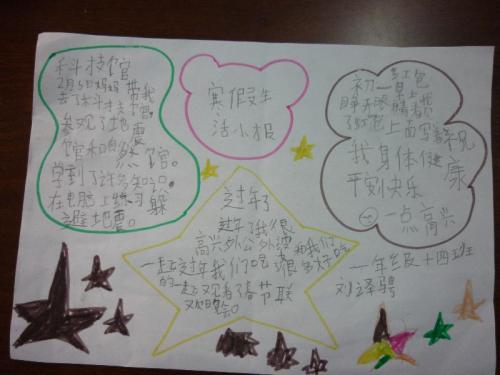 科技馆
2月5日妈妈带我
去了科技馆。
参观了地震
馆和自然馆。
学到了许多知识。
在电脑上练习躲
避地震。
寒假生
活小报
过年了
过年了我很
高兴外公外婆和我们
一起过年我们吃
的一起又观看了春节联
欢晚会。
初一早上
睁开眼睛看我
红包
上面写着祝
我身体健康
平安快乐
一点高兴
一年级十四班
刘译骋